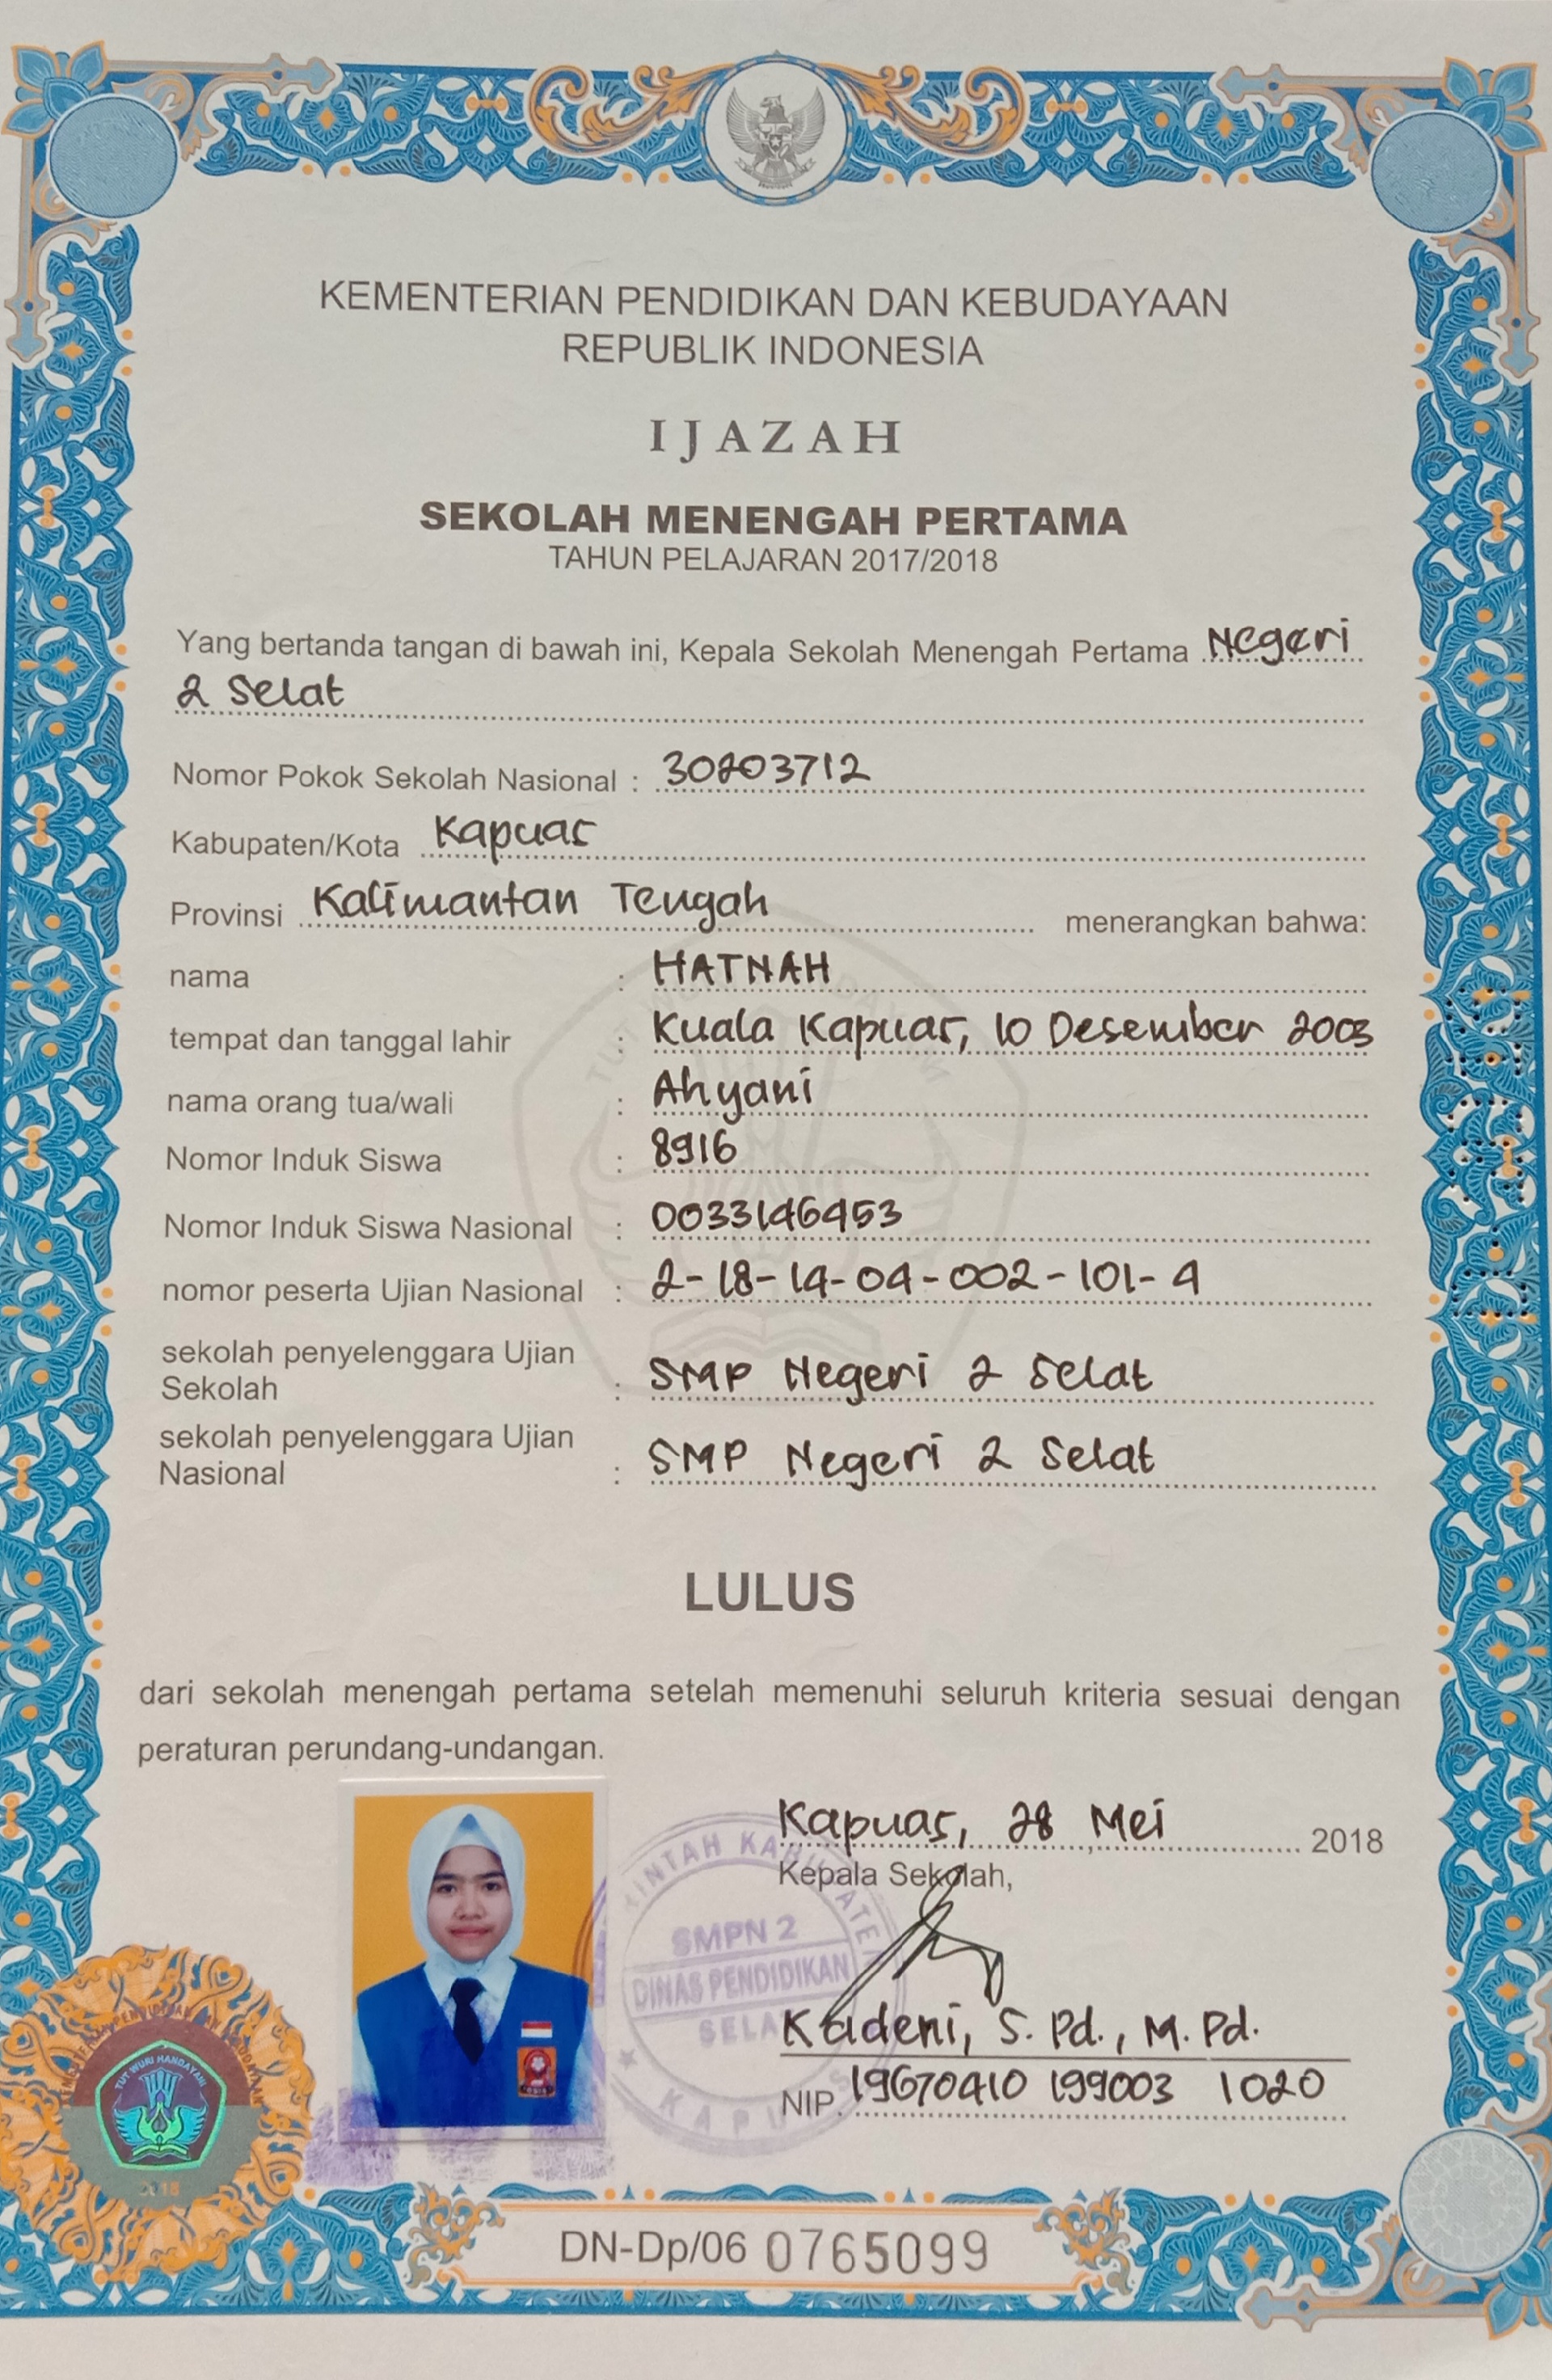 KEMENTERIAN PENDIDIKAN DAN KEBUDAYAAN
REPUBLIK INDONESIA
IJAZAH
SEKOLAH MENENGAH PERTAMA
TAHUN PELAJARAN 2017/2018
Yang bertanda tangan di bawah ini, Kepala Sekolah Menengah Pertama Negeri
2 Selat
Nomor Pokok Sekolah Nasional : 30203712
Kabupaten/Kota Kapuas
Provinsi Kalimantan Tengah menerangkan bahwa:
nama : HATNAH
tempat dan tanggal lahir : Kuala Kapuas, 10 Desember 2003
nama orang tua/wali : Ahyani
Nomor Induk Siswa : 8916
Nomor Induk Siswa Nasional : 0033146453
nomor peserta Ujian Nasional : 2-18-14-04-002-101-4
sekolah penyelenggara Ujian
Sekolah : SMP Negeri 2 Selat
sekolah penyelenggara Ujian
Nasional : SMP Negeri 2 Selat
LULUS
dari sekolah menengah pertama setelah memenuhi seluruh kriteria sesuai dengan
peraturan perundang-undangan.
Kapuas, 28 Mei 2018
Kepala Sekolah,
SMPN 2
DINAS PENDIDIKAN
Kadeni, S.Pd., M.Pd.
NIP. 19670410 199003 1020
TUT WURI HANDAYANI
2018
DN-Dp/06 0765099